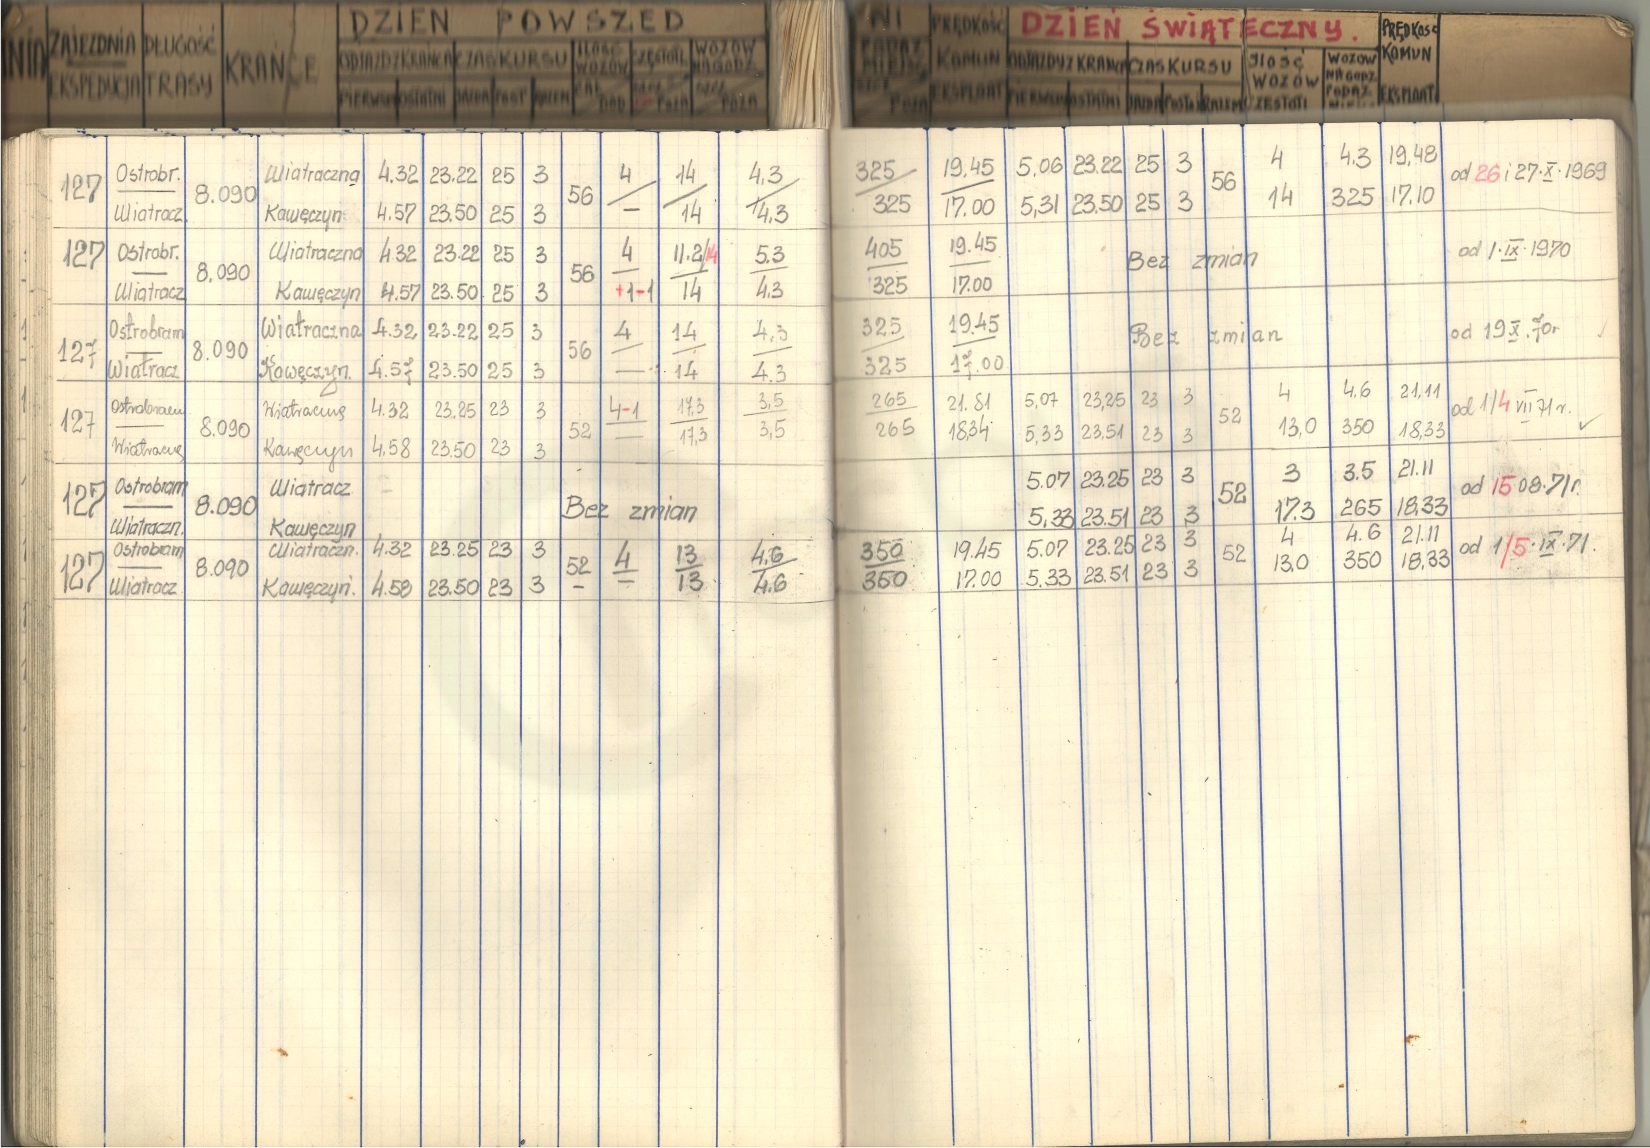 DZIEŃ POWSZED NI PRĘDKOŚĆ DZIEŃ ŚWIĄTECZNY. PRĘDKOŚĆ
NIA ZAJEZDNIA DŁUGOŚĆ KRAŃCE ODJAZD Z KRAŃCA CZAS KURSU ILOŚĆ WOZÓW CZĘSTOTL. WOZÓW NA GODZ. KOMUN ODJAZDY Z KRAŃCA CZAS KURSU ILOŚĆ WOZÓW WOZÓW NA GODZ. KOMUN
EKSPEDYCJA TRASY PIERWSZ OSTATNI JAZDA POST. RAZEM DOD POZA POZA EKSPLOAT. PIERWSZ OSTATNI JAZDA POSTÓJ RAZEM CZĘSTOTL POZA EKSPLOAT.
127 Ostrobr. 8.090 Wiatraczna 4.32 23.22 25 3 56 4 14 4,3 325 19.45 5,06 23.22 25 3 56 4 4.3 19,48 od 26 i 27.X.1969
Wiatracz. Kawęczyn 4.57 23.50 25 3 — 14 4,3 325 17.00 5,31 23.50 25 3 14 325 17.10
127 Ostrobr. 8.090 Wiatraczna 4.32 23.22 25 3 56 4 11.2/14 5.3 405 19.45 Bez zmian od 1.IX.1970
Wiatracz Kawęczyn 4.57 23.50 25 3 +1-1 14 4.3 325 17.00
127 Ostrobram 8.090 Wiatraczna 4.32 23.22 25 3 56 4 14 4,3 325 19.45 Bez zmian od 19 X.70r
Wiatracz Kawęczyn. 4.57 23.50 25 3 — 14 4.3 325 17.00
127 Ostrobram 8.090 Wiatraczną 4.32 23,25 23 3 52 4-1 17,3 3,5 265 21.81 5,07 23,25 23 3 52 4 4.6 21,11 od 1/4 VII 71 r. ✓
Wiatraczną Kawęczyn 4.58 23.50 23 3 — 17,3 3,5 265 18,34 5,33 23,51 23 3 13,0 350 18,33
127 Ostrobram 8.090 Wiatracz Bez zmian 5.07 23.25 23 3 52 3 3.5 21.11 od 15 08.71r.
Wiatraczn. Kawęczyn 5,33 23.51 23 3 17.3 265 18,33
127 Ostrobram 8.090 Wiatraczn. 4.32 23.25 23 3 52 4 13 4,6 350 19.45 5.07 23.25 23 3 52 4 4.6 21.11 od 1/5.IX.71.
Wiatracz Kawęczyn. 4.58 23.50 23 3 – – 13 4.6 350 17.00 5.33 23.51 23 3 13,0 350 18,33